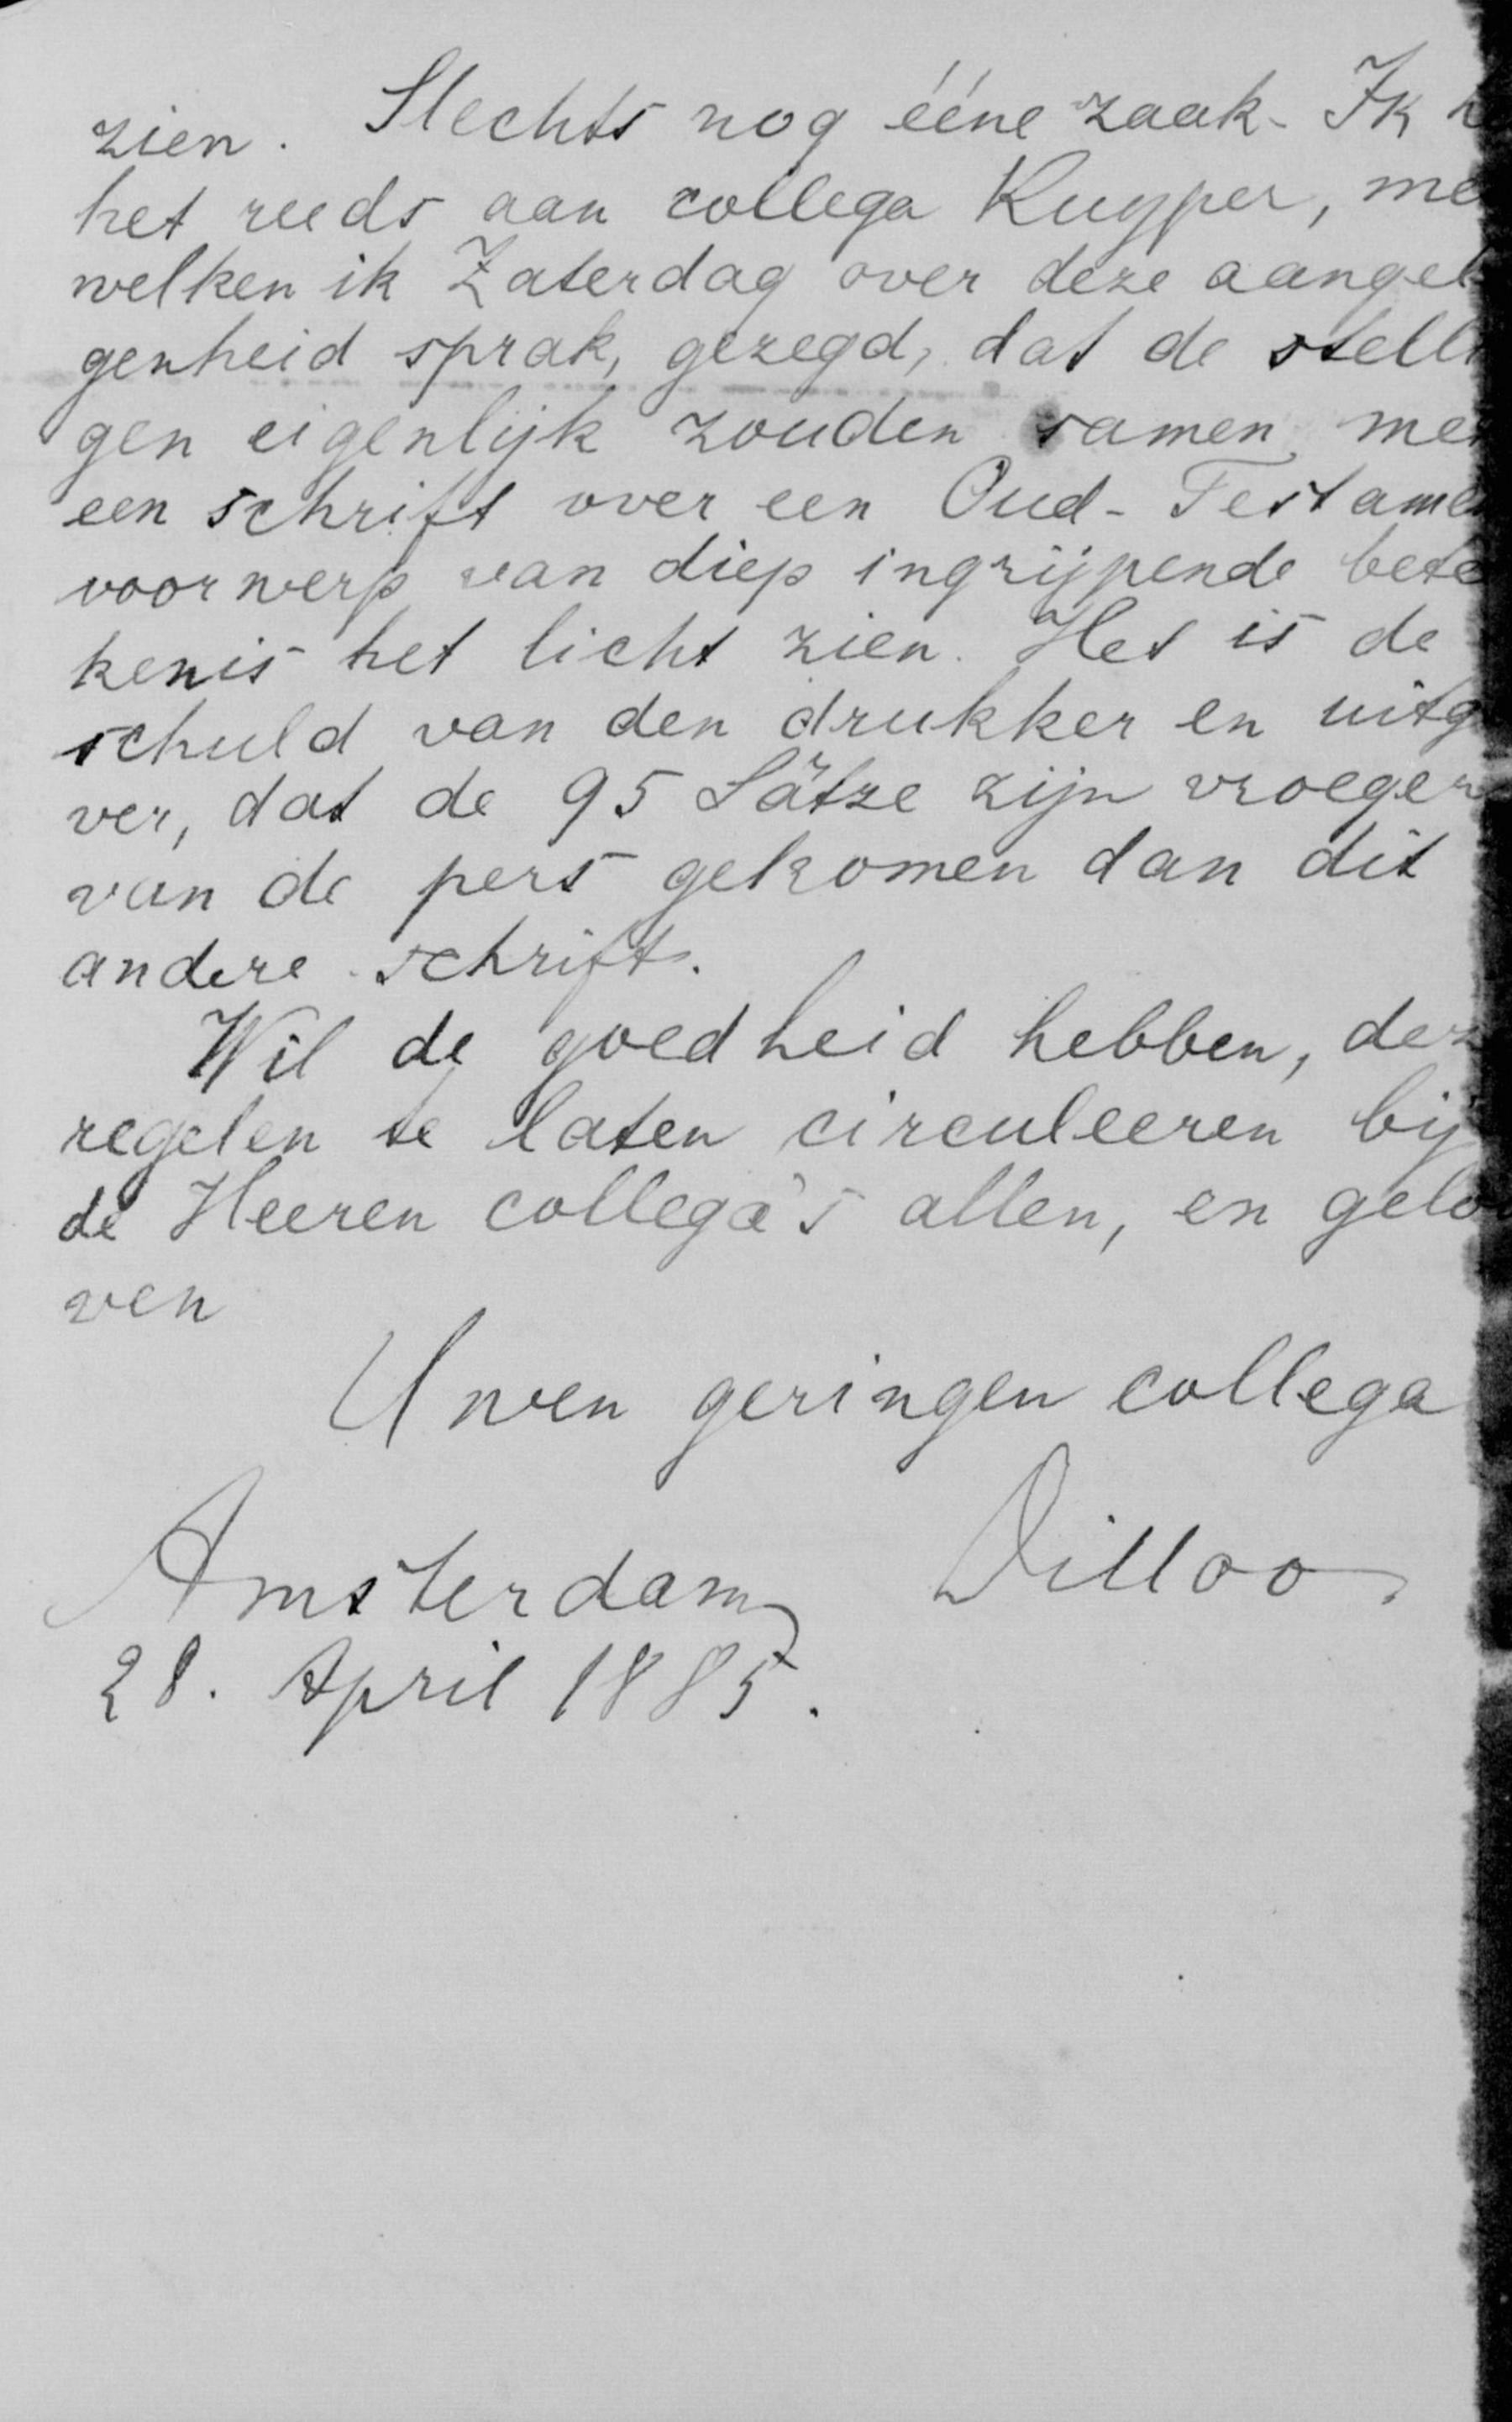 zien. Slechts nog ééne zaak. Ik h
het reeds aan collega Kuyper, me
welken ik Zaterdag over deze aangel
genheid sprak, gezegd, dat de stelli
gen eigenlijk zouden samen met
een schrift over een Oud-Testame
voorwerp van diep ingrijpende bete
kenis het licht zien. Het is de
schuld van den drukker en uitg
ver, dat de 95 Sätze zijn vroeger
van de pers gekomen dan dit
andere schrift.
Wil de goedheid hebben, dez
regelen te laten circuleeren bij
de Heeren collega's allen, en geloo
ven
Uwen geringen collega
Dilloo
Amsterdam,
28. April 1885.